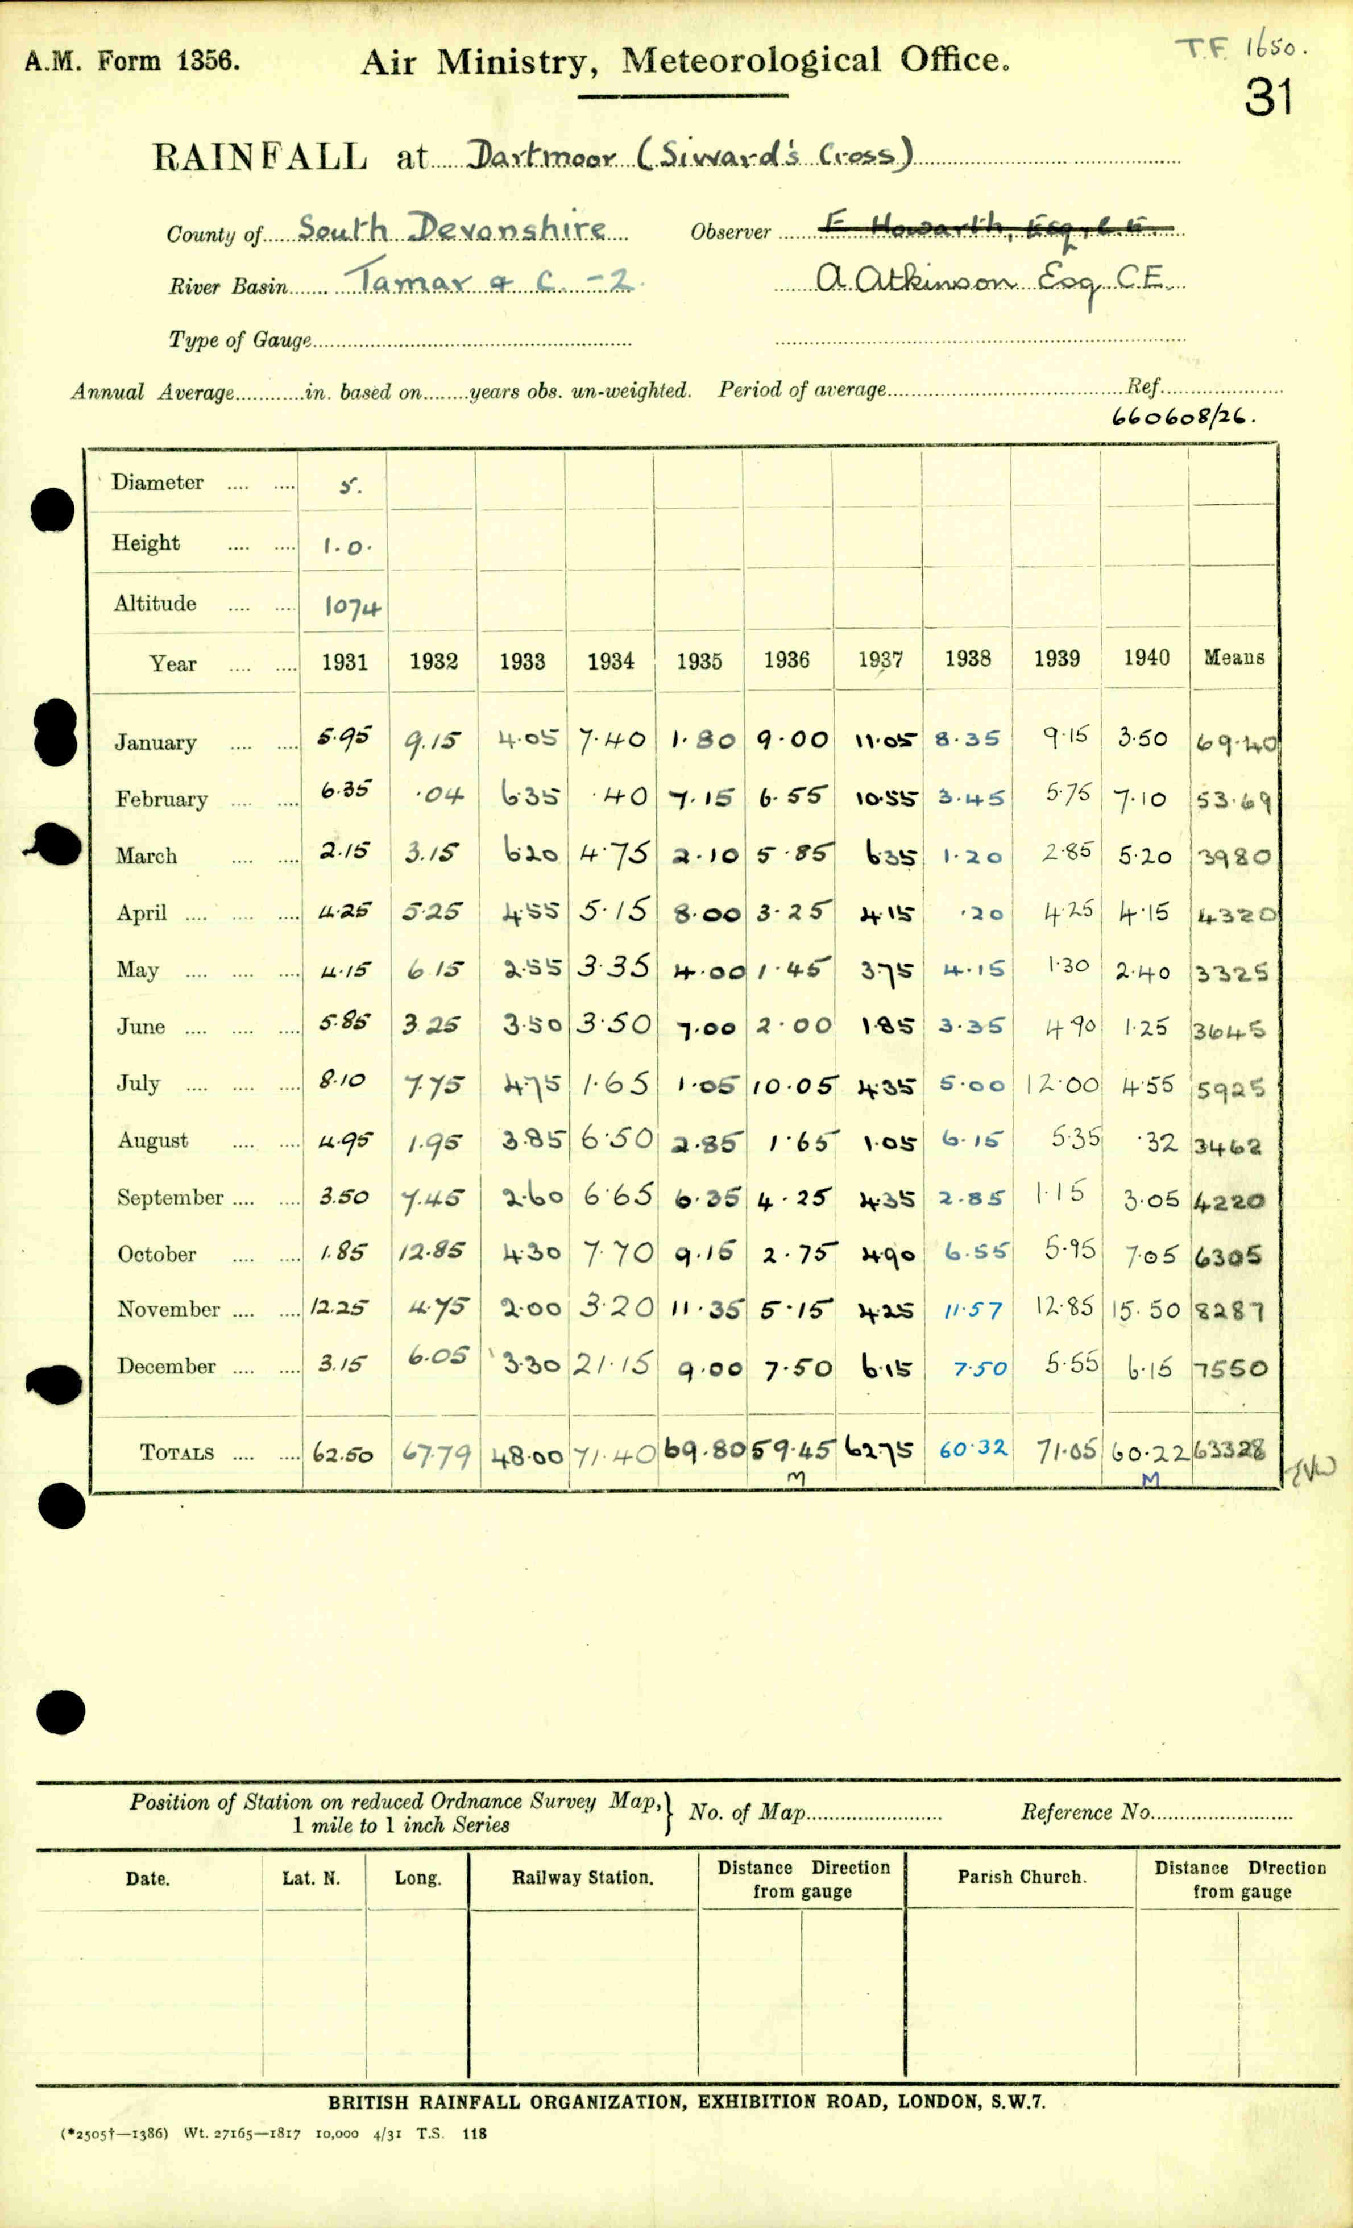 A.M. Form 1356.
Air Ministry, Meteorological Office.
T.F. 1650.
31
RAINFALL at Dartmoor (Siward's Cross)
County of South Devonshire Observer F Howarth, Esq, C.E.
River Basin Tamar & C. -2. A Atkinson Esq CE
Type of Gauge
Annual Average in. based on years obs. un-weighted. Period of average Ref.
660608/26.
Diameter 5.
Height 1.0.
Altitude 1074
Year 1931 1932 1933 1934 1935 1936 1937 1938 1939 1940 Means
January 5.95 9.15 4.05 7.40 1.80 9.00 11.05 8.35 9.15 3.50 69.40
February 6.35 .04 6.35 .40 7.15 6.55 10.55 3.45 5.75 7.10 53.69
March 2.15 3.15 6.20 4.75 2.10 5.85 6.35 1.20 2.85 5.20 3980
April 4.25 5.25 4.55 5.15 8.00 3.25 4.15 .20 4.25 4.15 4320
May 4.15 6.15 2.55 3.35 4.00 1.45 3.75 4.15 1.30 2.40 3325
June 5.85 3.25 3.50 3.50 7.00 2.00 1.85 3.35 4.90 1.25 3645
July 8.10 7.75 4.75 1.65 1.05 10.05 4.35 5.00 12.00 4.55 5925
August 4.95 1.95 3.85 6.50 2.85 1.65 1.05 6.15 5.35 .32 3462
September 3.50 7.45 2.60 6.65 6.35 4.25 4.35 2.85 1.15 3.05 4220
October 1.85 12.85 4.30 7.70 9.15 2.75 4.90 6.55 5.95 7.05 6305
November 12.25 4.75 2.00 3.20 11.35 5.15 4.25 11.57 12.85 15.50 8287
December 3.15 6.05 3.30 21.15 9.00 7.50 6.15 7.50 5.55 6.15 7550
TOTALS 62.50 67.79 48.00 71.40 69.80 59.45 62.75 60.32 71.05 60.22 63328
M M
Position of Station on reduced Ordnance Survey Map, 1 mile to 1 inch Series } No. of Map Reference No.
Date. Lat. N. Long. Railway Station. Distance Direction from gauge Parish Church. Distance Direction from gauge
BRITISH RAINFALL ORGANIZATION, EXHIBITION ROAD, LONDON, S.W.7.
(*2505†—1386) Wt. 27165—1817 10,000 4/31 T.S. 118